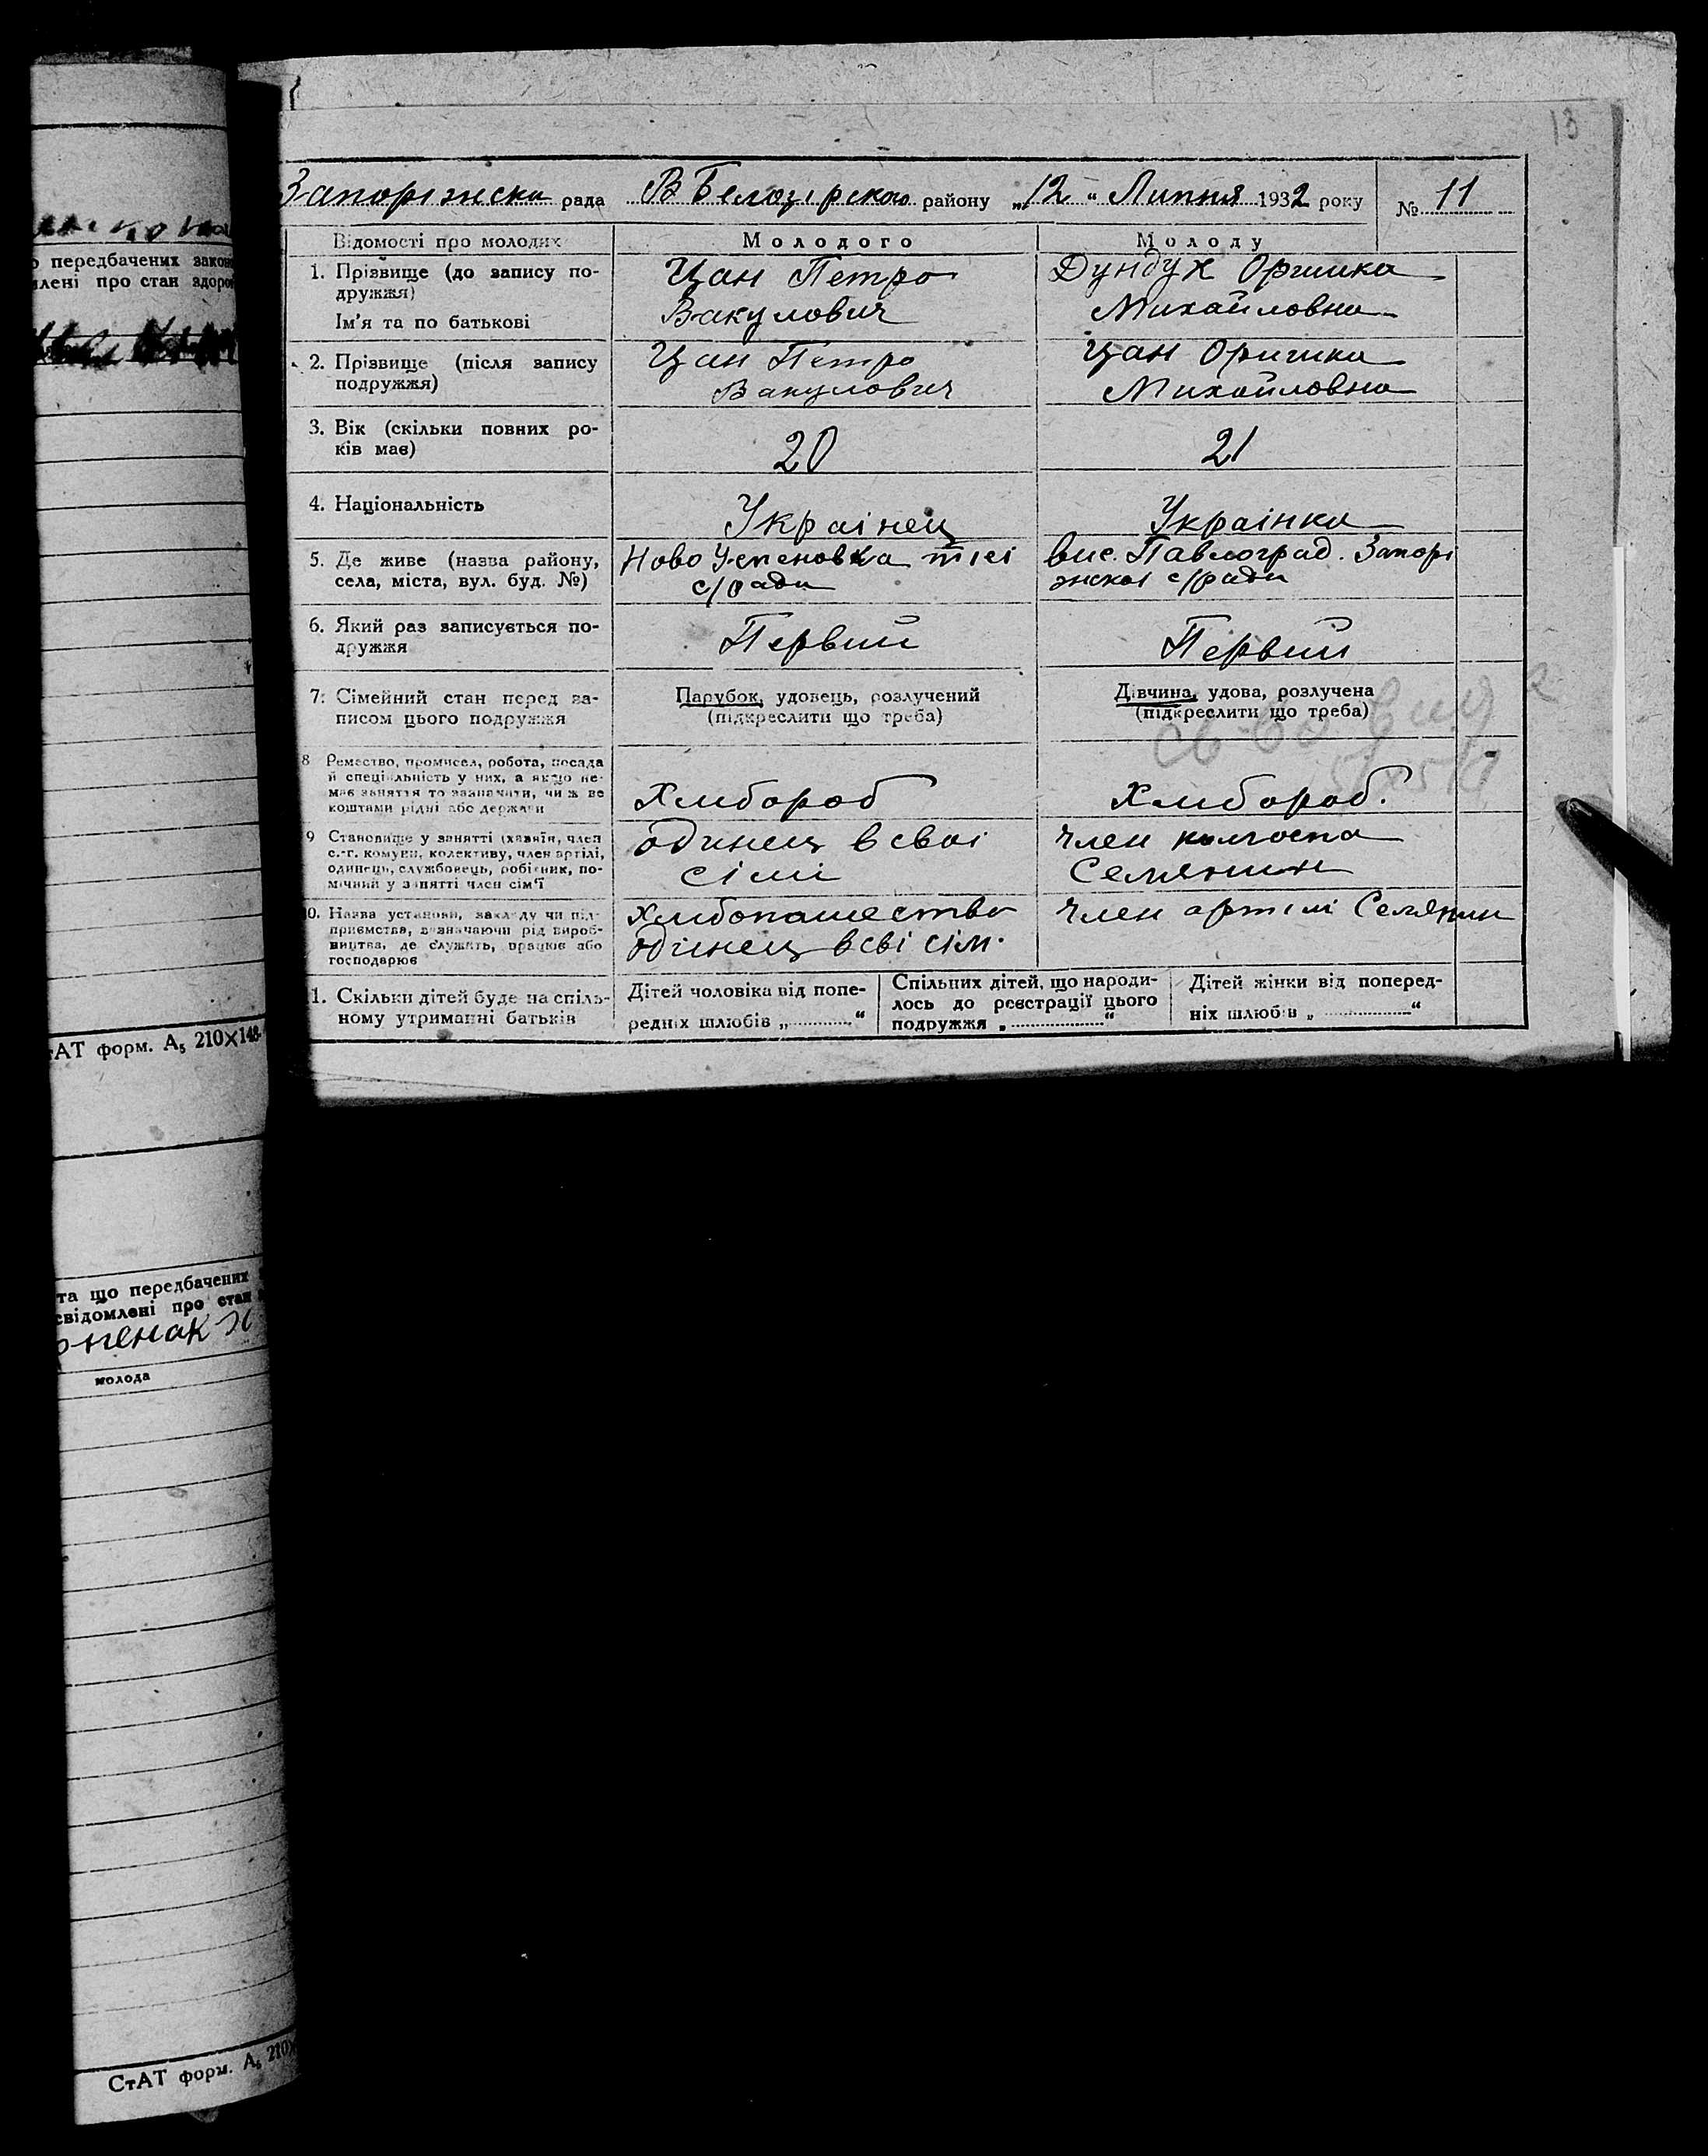 13
Запоріжска рада В Белозірского району „12“ Липня 1932 року № 11
Відомості про молодих Молодого Молоду
1. Прізвище (до запису по-
дружжя)
Ім'я та по батькові
Цап Петро
Вакулович
Дундук Оришка
Михайловна
2. Прізвище (після запису
подружжя)
Цап Петро
Вакулович
Цап Оришка
Михайловна
3. Вік (скільки повних ро-
ків має)
20
21
4. Національність
Украінец
Украінка
5. Де живе (назва району,
села, міста, вул. буд. №)
Ново Успеновка тієі
с/ради
вис. Павлоград. Запорі
жскоі с/ради
6. Який раз записується по-
дружжя
Первий
Первий
7. Сімейний стан перед за-
писом цього подружжя
Парубок, удовець, розлучений
(підкреслити що треба)
Дівчина, удова, розлучена
(підкреслити що треба)
8 Ремество, промисел, робота, посада
й спеціяльність у них, а якщо не-
має заняття то зазначити, чиїм ве
коштами рідні або держави
Хлибороб
Хлибороб.
9 Становище у занятті (хазяїн, член
с.-г. комуни, колективу, член артілі,
одинець, службовець, робітник, по-
мічний у занятті член сім'ї
одинец в своі
сімі
член колгоспа
Семянин
10. Назва установи, закладу чи під-
приємства, зазначаючи рід вироб-
ництва, де служить, працює або
господарює
Хлибопашество
одинец в сві сім.
член артілі Семянин
11. Скільки дітей буде на спіль-
ному утриманні батьків
Дітей чоловіка від попе-
редніх шлюбів „ “
Спільних дітей, що народи-
лось до реєстрації цього
подружжя „ “
Дітей жінки від поперед-
ніх шлюбів „ “
передбачених закон
про стан здоров
АТ форм. А₅ 210×148
та що передбачених
свідомлені про стан
молода
СтАТ форм. А₅ 210×